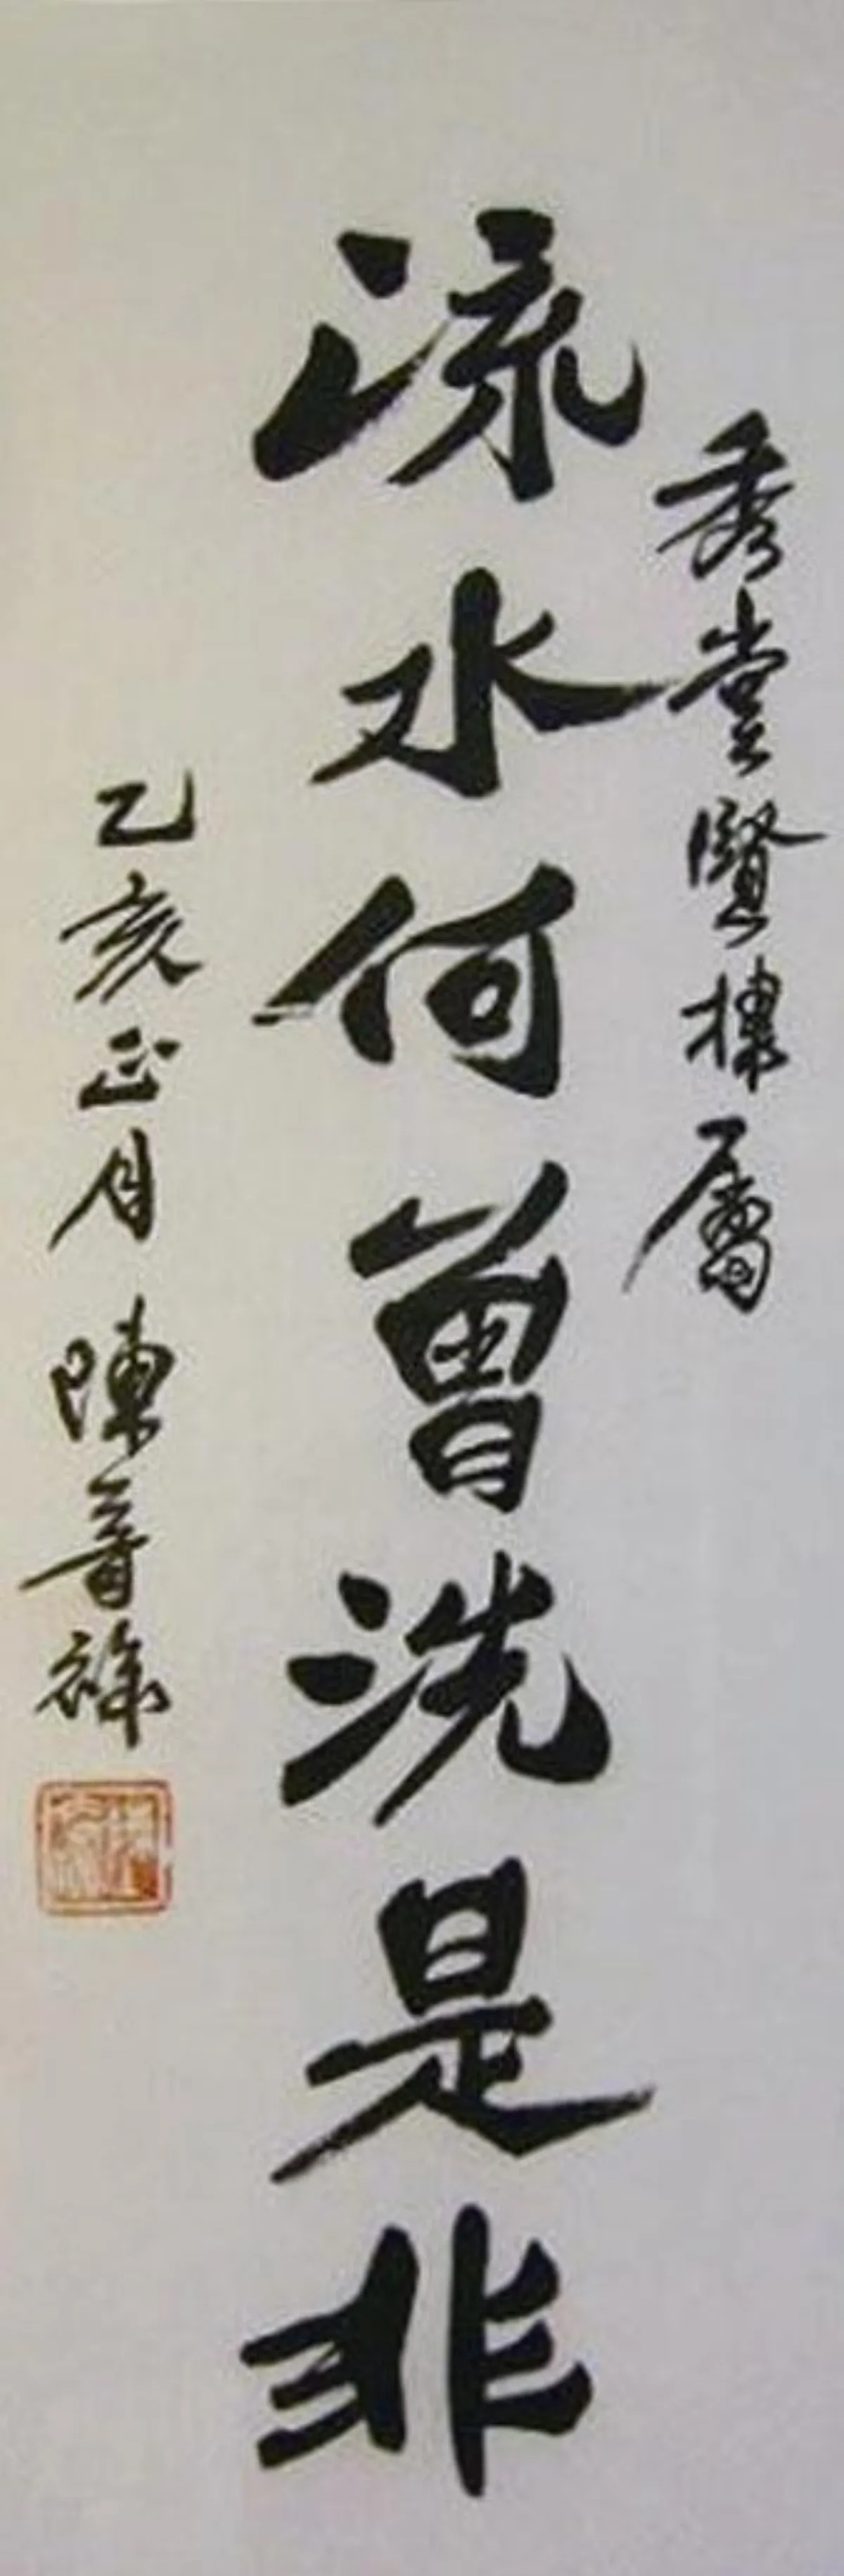 秀堂賢棣屬
流水何曾洗是非
乙亥正月 陳